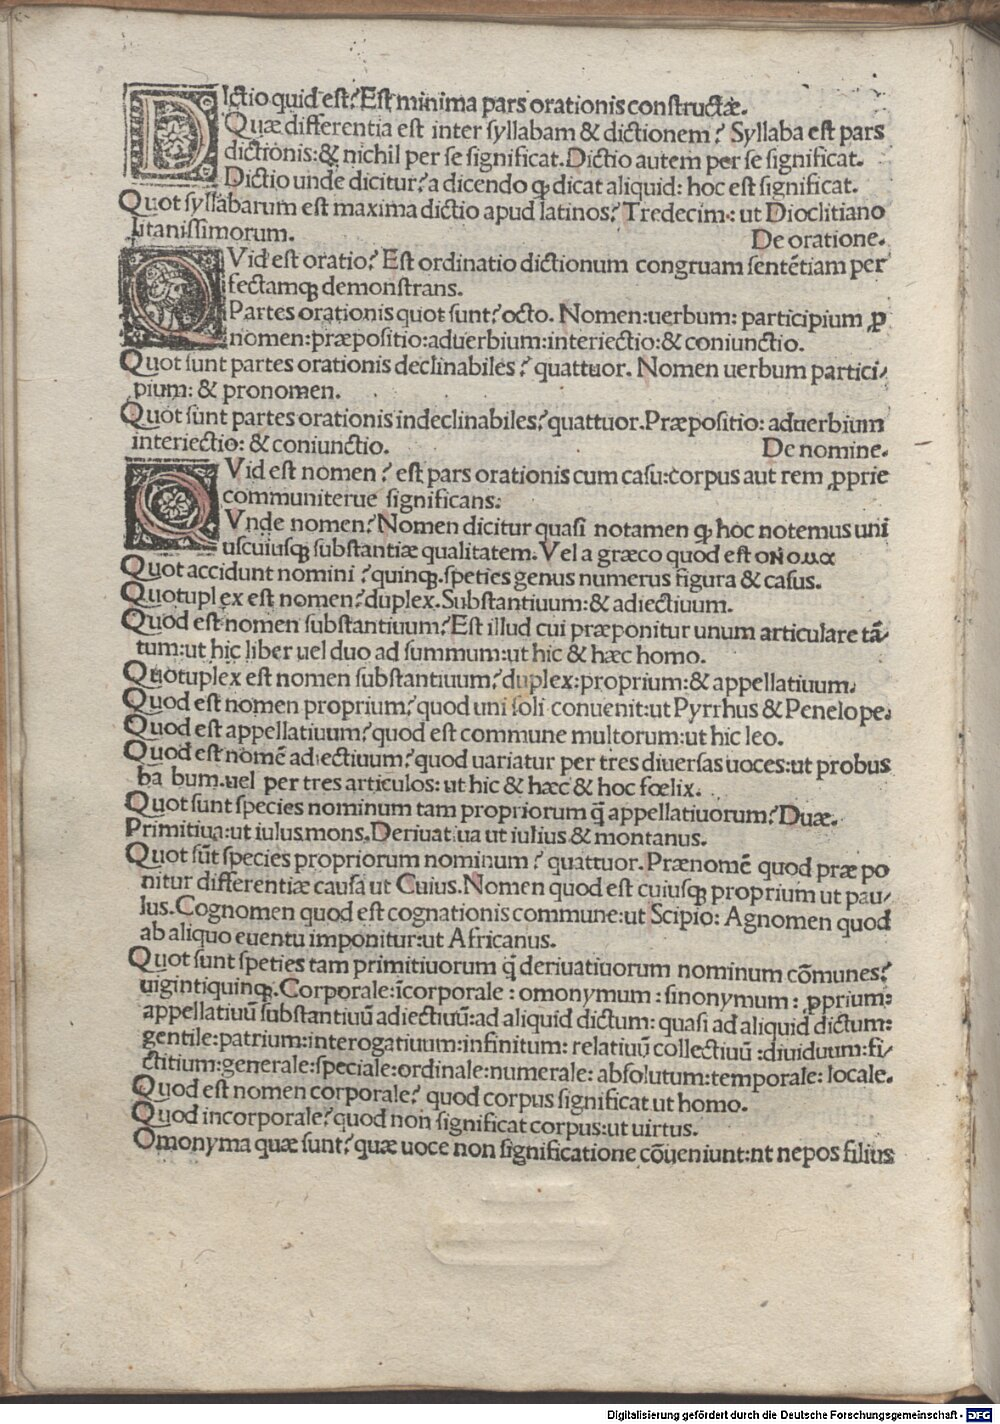 DIctio quid est? Est minima pars orationis constructæ.
Quæ differentia est inter syllabam & dictionem? Syllaba est pars
dictionis: & nichil per se significat. Dictio autem per se significat.
Dictio unde dicitur? a dicendo ꝙ dicat aliquid: hoc est significat.
Quot syllabarum est maxima dictio apud latinos? Tredecim: ut Dioclitiano
litanissimorum. De oratione.
QVid est oratio? Est ordinatio dictionum congruam sentẽtiam per
fectamqꝫ demonstrans.
Partes orationis quot sunt? octo. Nomen: uerbum: participium ꝓ
nomen: præpositio: aduerbium: interiectio: & coniunctio.
Quot sunt partes orationis declinabiles? quattuor. Nomen uerbum partici/
pium: & pronomen.
Quot sunt partes orationis indeclinabiles? quattuor. Præpositio: aduerbium
interiectio: & coniunctio. De nomine.
QVid est nomen? est pars orationis cum casu: corpus aut rem ꝓprie
communiterue significans.
Vnde nomen? Nomen dicitur quasi notamen ꝙ hoc notemus uni
uscuiusqꝫ substantiæ qualitatem. Vel a græco quod est ονομα
Quot accidunt nomini? quinqꝫ. speties genus numerus figura & casus.
Quotuplex est nomen? duplex. Substantiuum: & adiectiuum.
Quod est nomen substantiuum? Est illud cui præponitur unum articulare tã/
tum: ut hic liber uel duo ad summum: ut hic & hæc homo.
Quotuplex est nomen substantiuum? duplex: proprium: & appellatiuum.
Quod est nomen proprium? quod uni soli conuenit: ut Pyrrhus & Penelope.
Quod est appellatiuum? quod est commune multorum: ut hic leo.
Quod est nomẽ adiectiuum? quod uariatur per tres diuersas uoces: ut probus
ba bum. uel per tres articulos: ut hic & hæc & hoc fœlix.
Quot sunt species nominum tam propriorum q̃ appellatiuorum? Duæ.
Primitiua: ut iulus mons. Deriuatiua ut iulius & montanus.
Quot sũt species propriorum nominum? quattuor. Prænomẽ quod præ po
nitur differentiæ causa ut Cuius. Nomen quod est cuiusqꝫ proprium ut pau/
lus. Cognomen quod est cognationis commune: ut Scipio: Agnomen quod
ab aliquo euentu imponitur: ut Africanus.
Quot sunt speties tam primitiuorum q̃ deriuatiuorum nominum cõmunes?
uigintiquinqꝫ. Corporale: ĩcorporale: omonymum: sinonymum: ꝓprium:
appellatiuũ substantiuũ adiectiuũ: ad aliquid dictum: quasi ad aliquid dictum:
gentile: patrium: interogatiuum: infinitum: relatiuũ collectiuũ: diuiduum: fi/
ctitium: generale: speciale: ordinale: numerale: absolutum: temporale: locale.
Quod est nomen corporale? quod corpus significat ut homo.
Quod incorporale? quod non significat corpus: ut uirtus.
Omonyma quæ sunt? quæ uoce non significatione cõueniunt: nt nepos filius
Digitalisierung gefördert durch die Deutsche Forschungsgemeinschaft - DFG